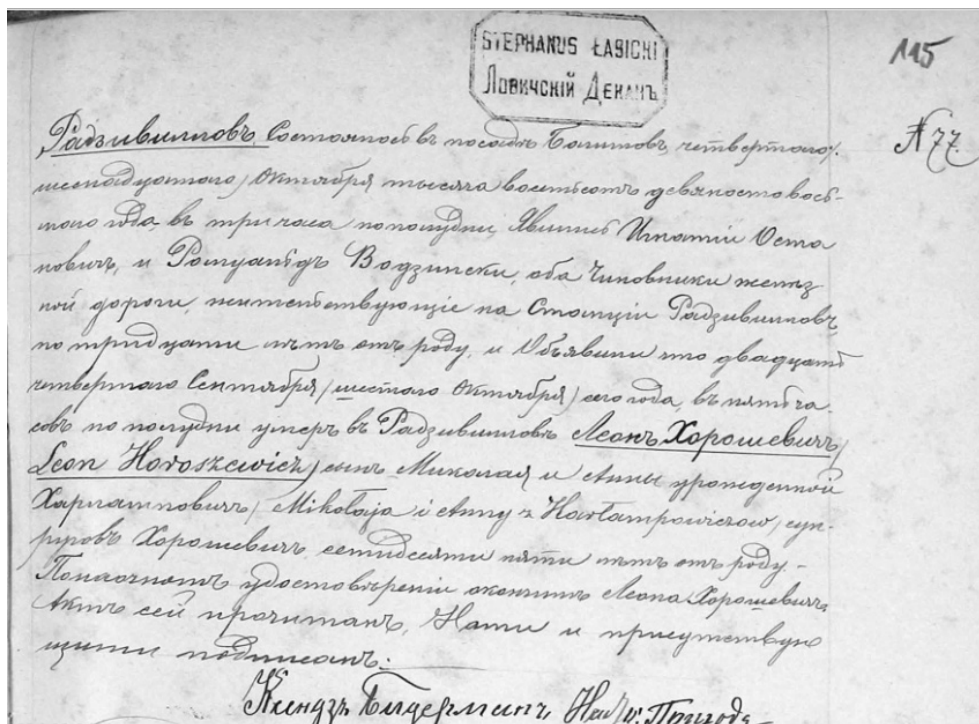 STEPHANUS ŁASICKI
Ловичскій Деканъ
115
№ 77.
Радзивилловъ, Состоялось въ посадѣ Болимовъ, четвертаго/
шестнадцатаго/ Октября тысяча восемьсотъ девяносто вось-
маго года, въ три часа пополудни, Явились Игнатій Оста
новичъ, и Ромуальдъ Водзински, оба Чиновники желѣз
ной дороги, жительствующіе на Станціи Радзивилловъ,
по тридцати лѣтъ отъ роду, и Объявили что двадцать
четвертаго Сентября /шестаго Октября/ сего года, въ пять ча-
совъ по полудни умеръ въ Радзивилловѣ Леонъ Хорошевичъ/
Leon Horoszewicz/ сынъ Миколая и Анны урожденной
Харлампович /Mikołaja i Anny z Harłampowiczow/ суп-
руговъ Хорошевичъ, семидесяти пяти лѣтъ отъ роду.-
По наочномъ удостовѣреніи о кончинѣ Леона Хорошевичъ,
Актъ сей прочитанъ, Нами и присутствую
щими подписанъ.
Ксендзъ Бидерманъ,